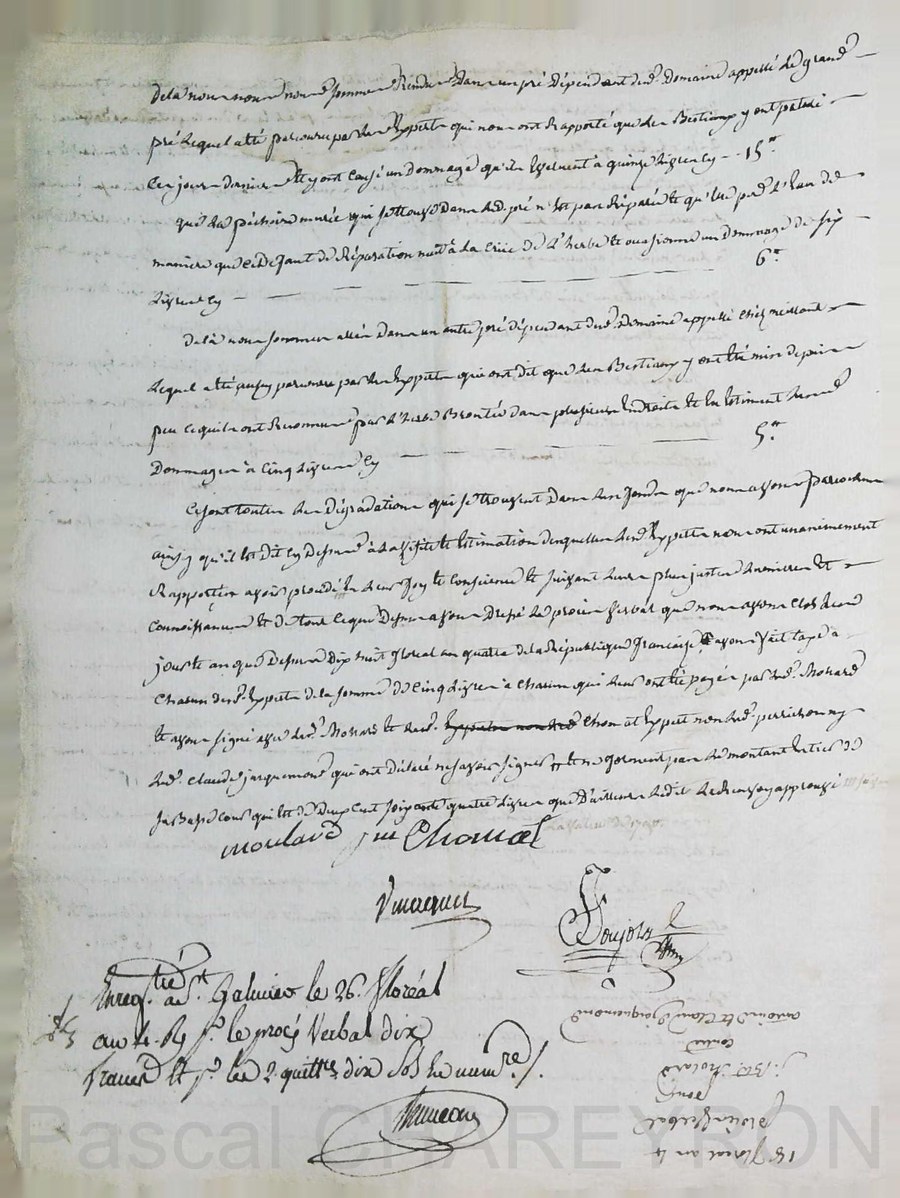 De là nous nous sommes Rendus Dans un pré dépendant dud. Domaine appellé Le grand
pré Lequel a été parcouru par les Experts qui nous ont Rapporté que des Bestiaux y ont paturé
Ces jours derniers Et y ont causé un dommage qu'ils Evaluent à quinze Livres Cy 15
que la péchoire murée qui se trouve Dans led. pré n'est pas Réparée Et qu'elle perd L'Eau de
maniere que ce Défaut de Réparation nuit à la Crue de L'herbe Et occasionne un Dommage de six
Livres Cy 6
De là nous sommes allés Dans un autre pré dépendant dud. Domaine appellé
Lequel a été aussy parcouru par les Experts qui ont dit que des Bestiaux y ont été mis depuis
peu ce qu'ils ont Reconnu par L'herbe Broutée dans plusieurs Endroits Et En Estiment le
Dommage à Cinq Livres Cy 5
Ce sont toutes les Dégradations qui se trouvent Dans les fonds que nous avons parcourus
ainsy qu'il est Dit Cy Dessus à la Visite Et Estimation desquelles lesd. Experts nous ont unanimement
Rapporté avoir procédé En leur foy Et Conscience Et suivant leurs plus justes lumieres Et
Connoissances Et de tout ce que Dessus avons Dressé Le procès Verbal que nous avons Clos Lesd.
jour Et an que Dessus Dix huit floreal an quatre de la République francaise, Et avons fait taxe à
Chacun desd. Experts de la somme de Cinq Livres à Chacun qui leur ont été payés par led. Molard
Et avons signé avec led. Molard Et led. Chomat Expert non led. perichon ny
led. Claude jacquemond qui ont déclaré ne savoir signer
la Basse Cour qui est de Deux Cent soixante quatre Livres approuvé
Chomat
Enreg.tré a St. Galmier le 26. floréal
au 4. R. pr. le procès Verbal dix
francs Et pr. les 2. quittces dix sols en numre./.
18 floreal an 4
procès Verbal
pour
j. Bte. Molard
contre
antoine Et Claude jacquemond
Pascal CHAREYRON